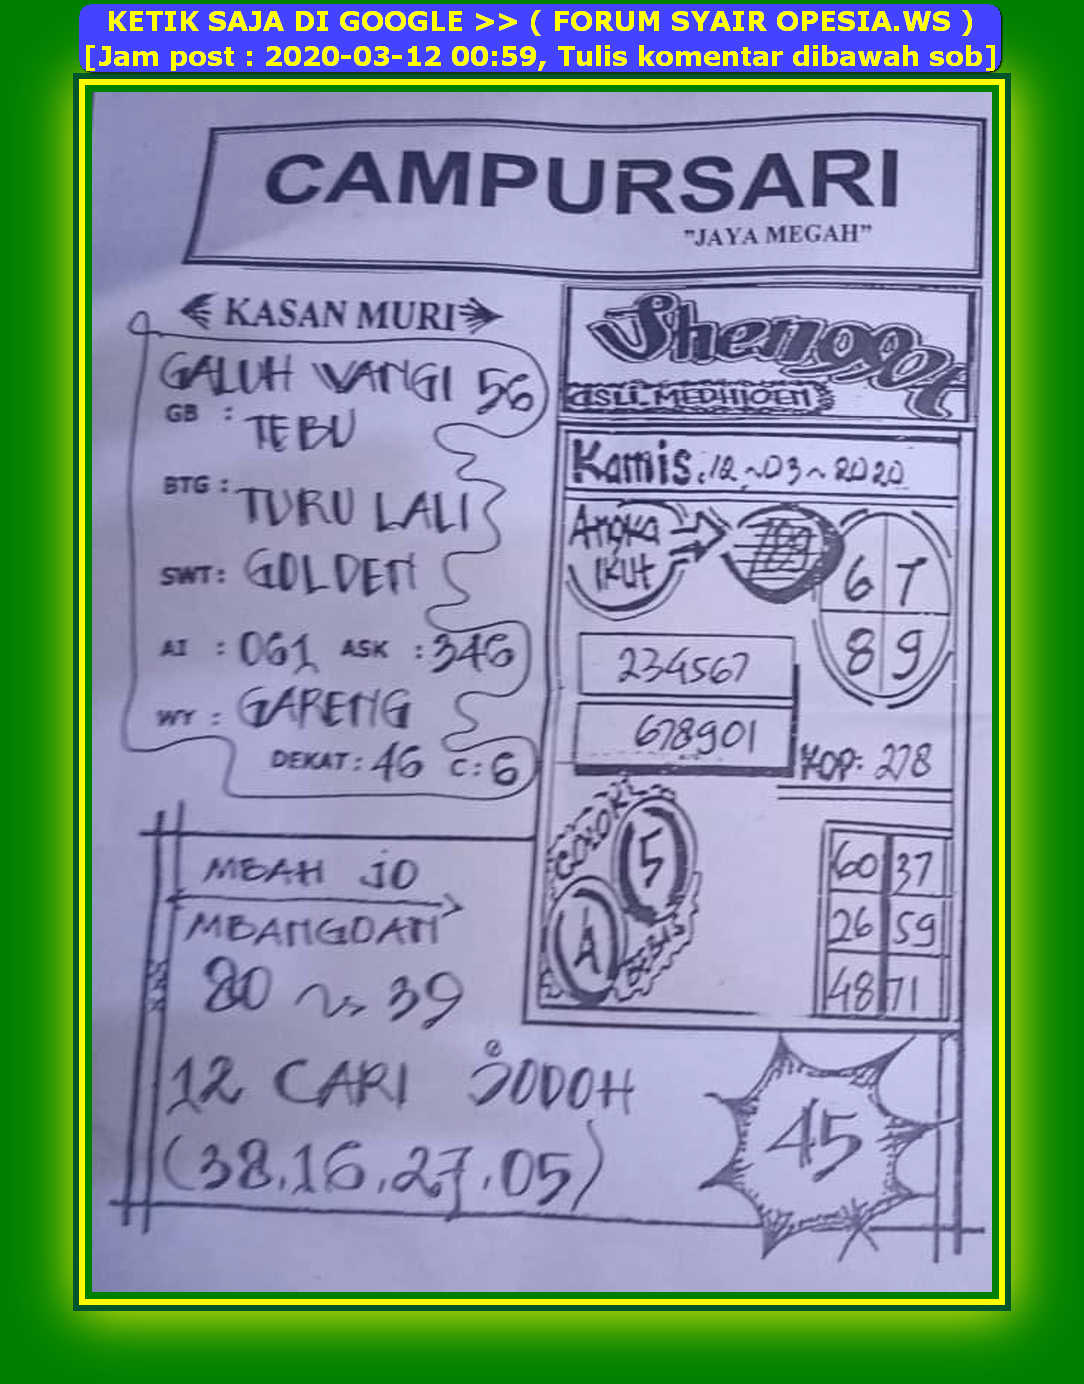 KETIK SAJA DI GOOGLE >> ( FORUM SYAIR OPESIA.WS )
[Jam post : 2020-03-12 00:59, Tulis komentar dibawah sob]
CAMPURSARI
"JAYA MEGAH"
KASAN MURI
GALUH WANGI 56
GB : TEBU
BTG : TURU LALI
SWT : GOLDEN
AI : 061 ASK : 346
WY : GARENG
DEKAT : 46 C : 6
Shenggot
ASLI MEDHIOEN
Kamis, 12~03~2020
Angka
IKUt
6 7
8 9
234567
678901
KOP: 278
COLOK
5
4
BEBAS
60 37
26 59
48 71
MBAH JO
MBANGDAN
80 39
12 CARI JODOH
(38.16.27.05)
45